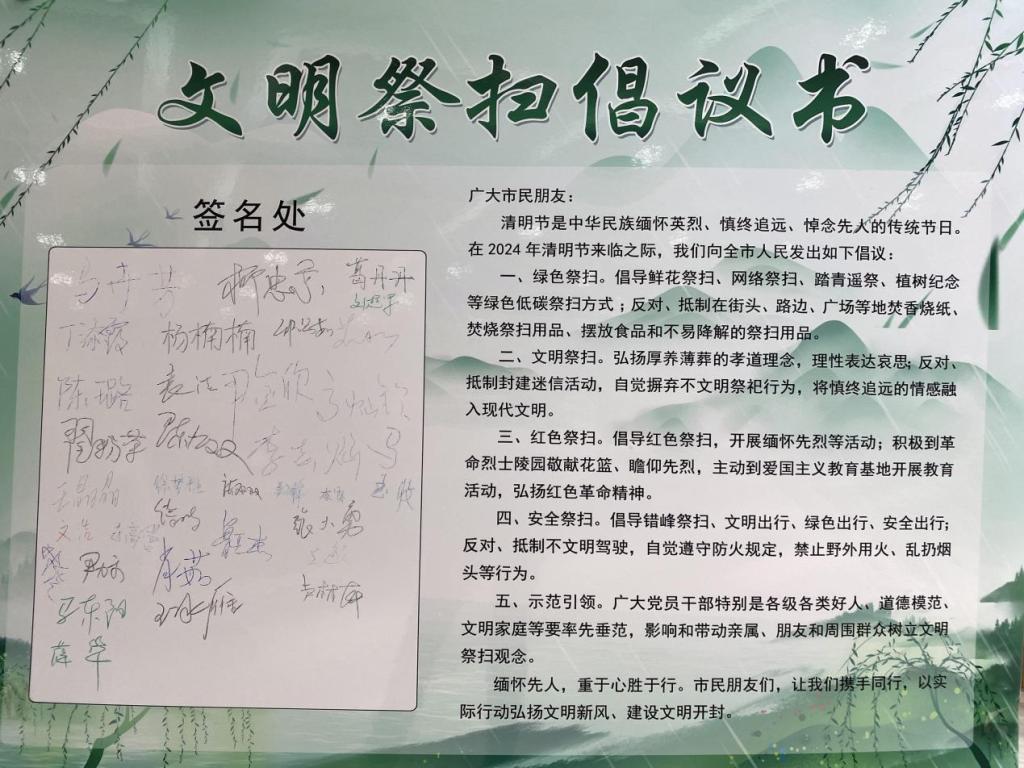 文明祭扫倡议书
签名处
柯忠
葛丹丹
杨楠楠
陈璐
袁法
王晶晶
文浩
张大勇
尹
肖茹
马东阳
薛
广大市民朋友：
清明节是中华民族缅怀英烈、慎终追远、悼念先人的传统节日。
在 2024 年清明节来临之际，我们向全市人民发出如下倡议：
一、绿色祭扫。倡导鲜花祭扫、网络祭扫、踏青遥祭、植树纪念
等绿色低碳祭扫方式；反对、抵制在街头、路边、广场等地焚香烧纸、
焚烧祭扫用品、摆放食品和不易降解的祭扫用品。
二、文明祭扫。弘扬厚养薄葬的孝道理念，理性表达哀思；反对、
抵制封建迷信活动，自觉摒弃不文明祭祀行为，将慎终追远的情感融
入现代文明。
三、红色祭扫。倡导红色祭扫，开展缅怀先烈等活动；积极到革
命烈士陵园敬献花篮、瞻仰先烈，主动到爱国主义教育基地开展教育
活动，弘扬红色革命精神。
四、安全祭扫。倡导错峰祭扫、文明出行、绿色出行、安全出行；
反对、抵制不文明驾驶，自觉遵守防火规定，禁止野外用火、乱扔烟
头等行为。
五、示范引领。广大党员干部特别是各级各类好人、道德模范、
文明家庭等要率先垂范，影响和带动亲属、朋友和周围群众树立文明
祭扫观念。
缅怀先人，重于心胜于行。市民朋友们，让我们携手同行，以实
际行动弘扬文明新风、建设文明开封。